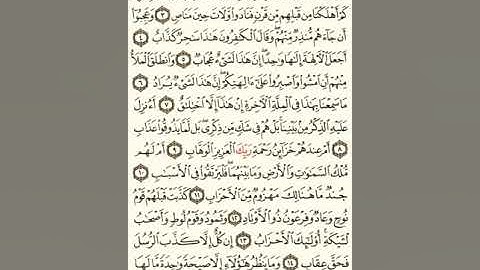 كَمْ أَهْلَكْنَا مِن قَبْلِهِم مِّن قَرْنٍ فَنَادَوا۟ وَّلَاتَ حِينَ مَنَاصٍ ٣ وَعَجِبُوٓا۟
أَن جَآءَهُم مُّنذِرٌ مِّنْهُمْ وَقَالَ ٱلْكَٰفِرُونَ هَٰذَا سَٰحِرٌ كَذَّابٌ ٤
أَجَعَلَ ٱلْءَالِهَةَ إِلَٰهًا وَٰحِدًا إِنَّ هَٰذَا لَشَىْءٌ عُجَابٌ ٥ وَٱنطَلَقَ ٱلْمَلَأُ
مِنْهُمْ أَنِ ٱمْشُوا۟ وَٱصْبِرُوا۟ عَلَىٰٓ ءَالِهَتِكُمْ إِنَّ هَٰذَا لَشَىْءٌ يُرَادُ ٦
مَا سَمِعْنَا بِهَٰذَا فِى ٱلْمِلَّةِ ٱلْءَاخِرَةِ إِنْ هَٰذَآ إِلَّا ٱخْتِلَٰقٌ ٧ أَءُنزِلَ
عَلَيْهِ ٱلذِّكْرُ مِنۢ بَيْنِنَا بَلْ هُمْ فِى شَكٍّ مِّن ذِكْرِى بَل لَّمَّا يَذُوقُوا۟ عَذَابِ
٨ أَمْ عِندَهُمْ خَزَآئِنُ رَحْمَةِ رَبِّكَ ٱلْعَزِيزِ ٱلْوَهَّابِ ٩ أَمْ لَهُم
مُّلْكُ ٱلسَّمَٰوَٰتِ وَٱلْأَرْضِ وَمَا بَيْنَهُمَا فَلْيَرْتَقُوا۟ فِى ٱلْأَسْبَٰبِ ١٠
جُندٌ مَّا هُنَالِكَ مَهْزُومٌ مِّنَ ٱلْأَحْزَابِ ١١ كَذَّبَتْ قَبْلَهُمْ قَوْمُ
نُوحٍ وَعَادٌ وَفِرْعَوْنُ ذُو ٱلْأَوْتَادِ ١٢ وَثَمُودُ وَقَوْمُ لُوطٍ وَأَصْحَٰبُ
لْـَٔيْكَةِ أُو۟لَٰٓئِكَ ٱلْأَحْزَابُ ١٣ إِن كُلٌّ إِلَّا كَذَّبَ ٱلرُّسُلَ
فَحَقَّ عِقَابِ ١٤ وَمَا يَنظُرُ هَٰٓؤُلَآءِ إِلَّا صَيْحَةً وَٰحِدَةً مَّا لَهَا